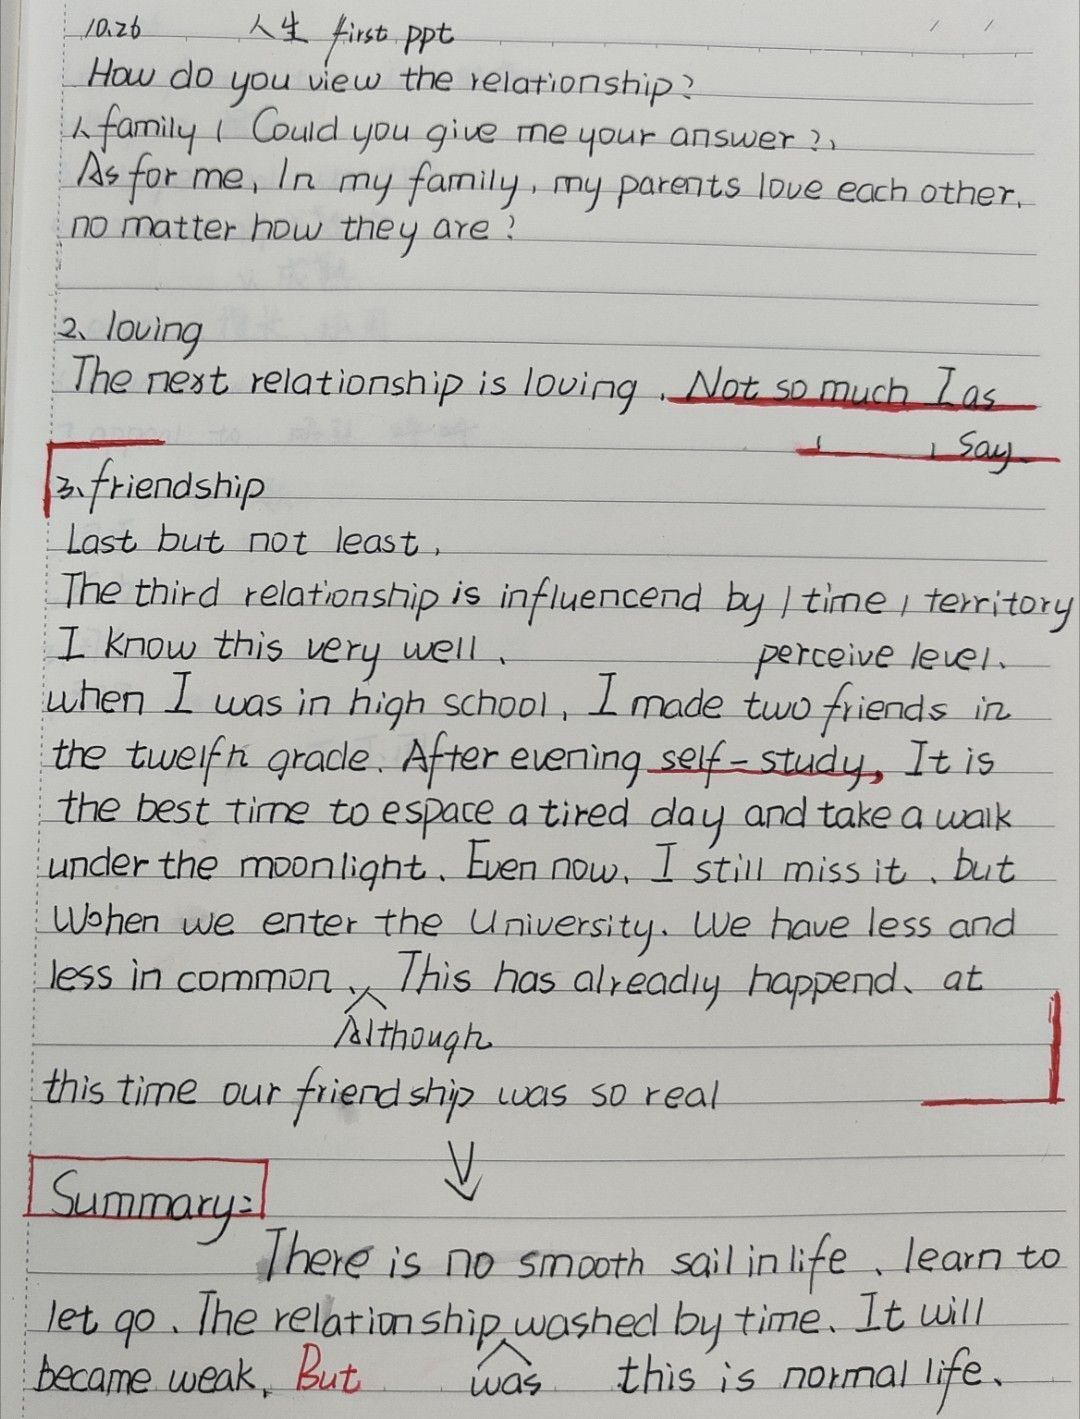 10.26 人生 first ppt
How do you view the relationship?
1、family, Could you give me your answer?,
As for me, In my family, my parents love each other,
no matter how they are?
2、loving
The next relationship is loving. Not so much I as
, , say.
3、friendship
Last but not least,
The third relationship is influencend by / time, territory
I know this very well. perceive level.
when I was in high school, I made two friends in
the twelfh grade. After evening self-study, It is
the best time to espace a tired day and take a walk
under the moonlight. Even now, I still miss it. but
When we enter the University. We have less and
less in common. This has already happend. at
Although
this time our friendship was so real
Summary:
There is no smooth sail in life. learn to
let go. The relationship washed by time. It will
became weak. But was this is normal life.